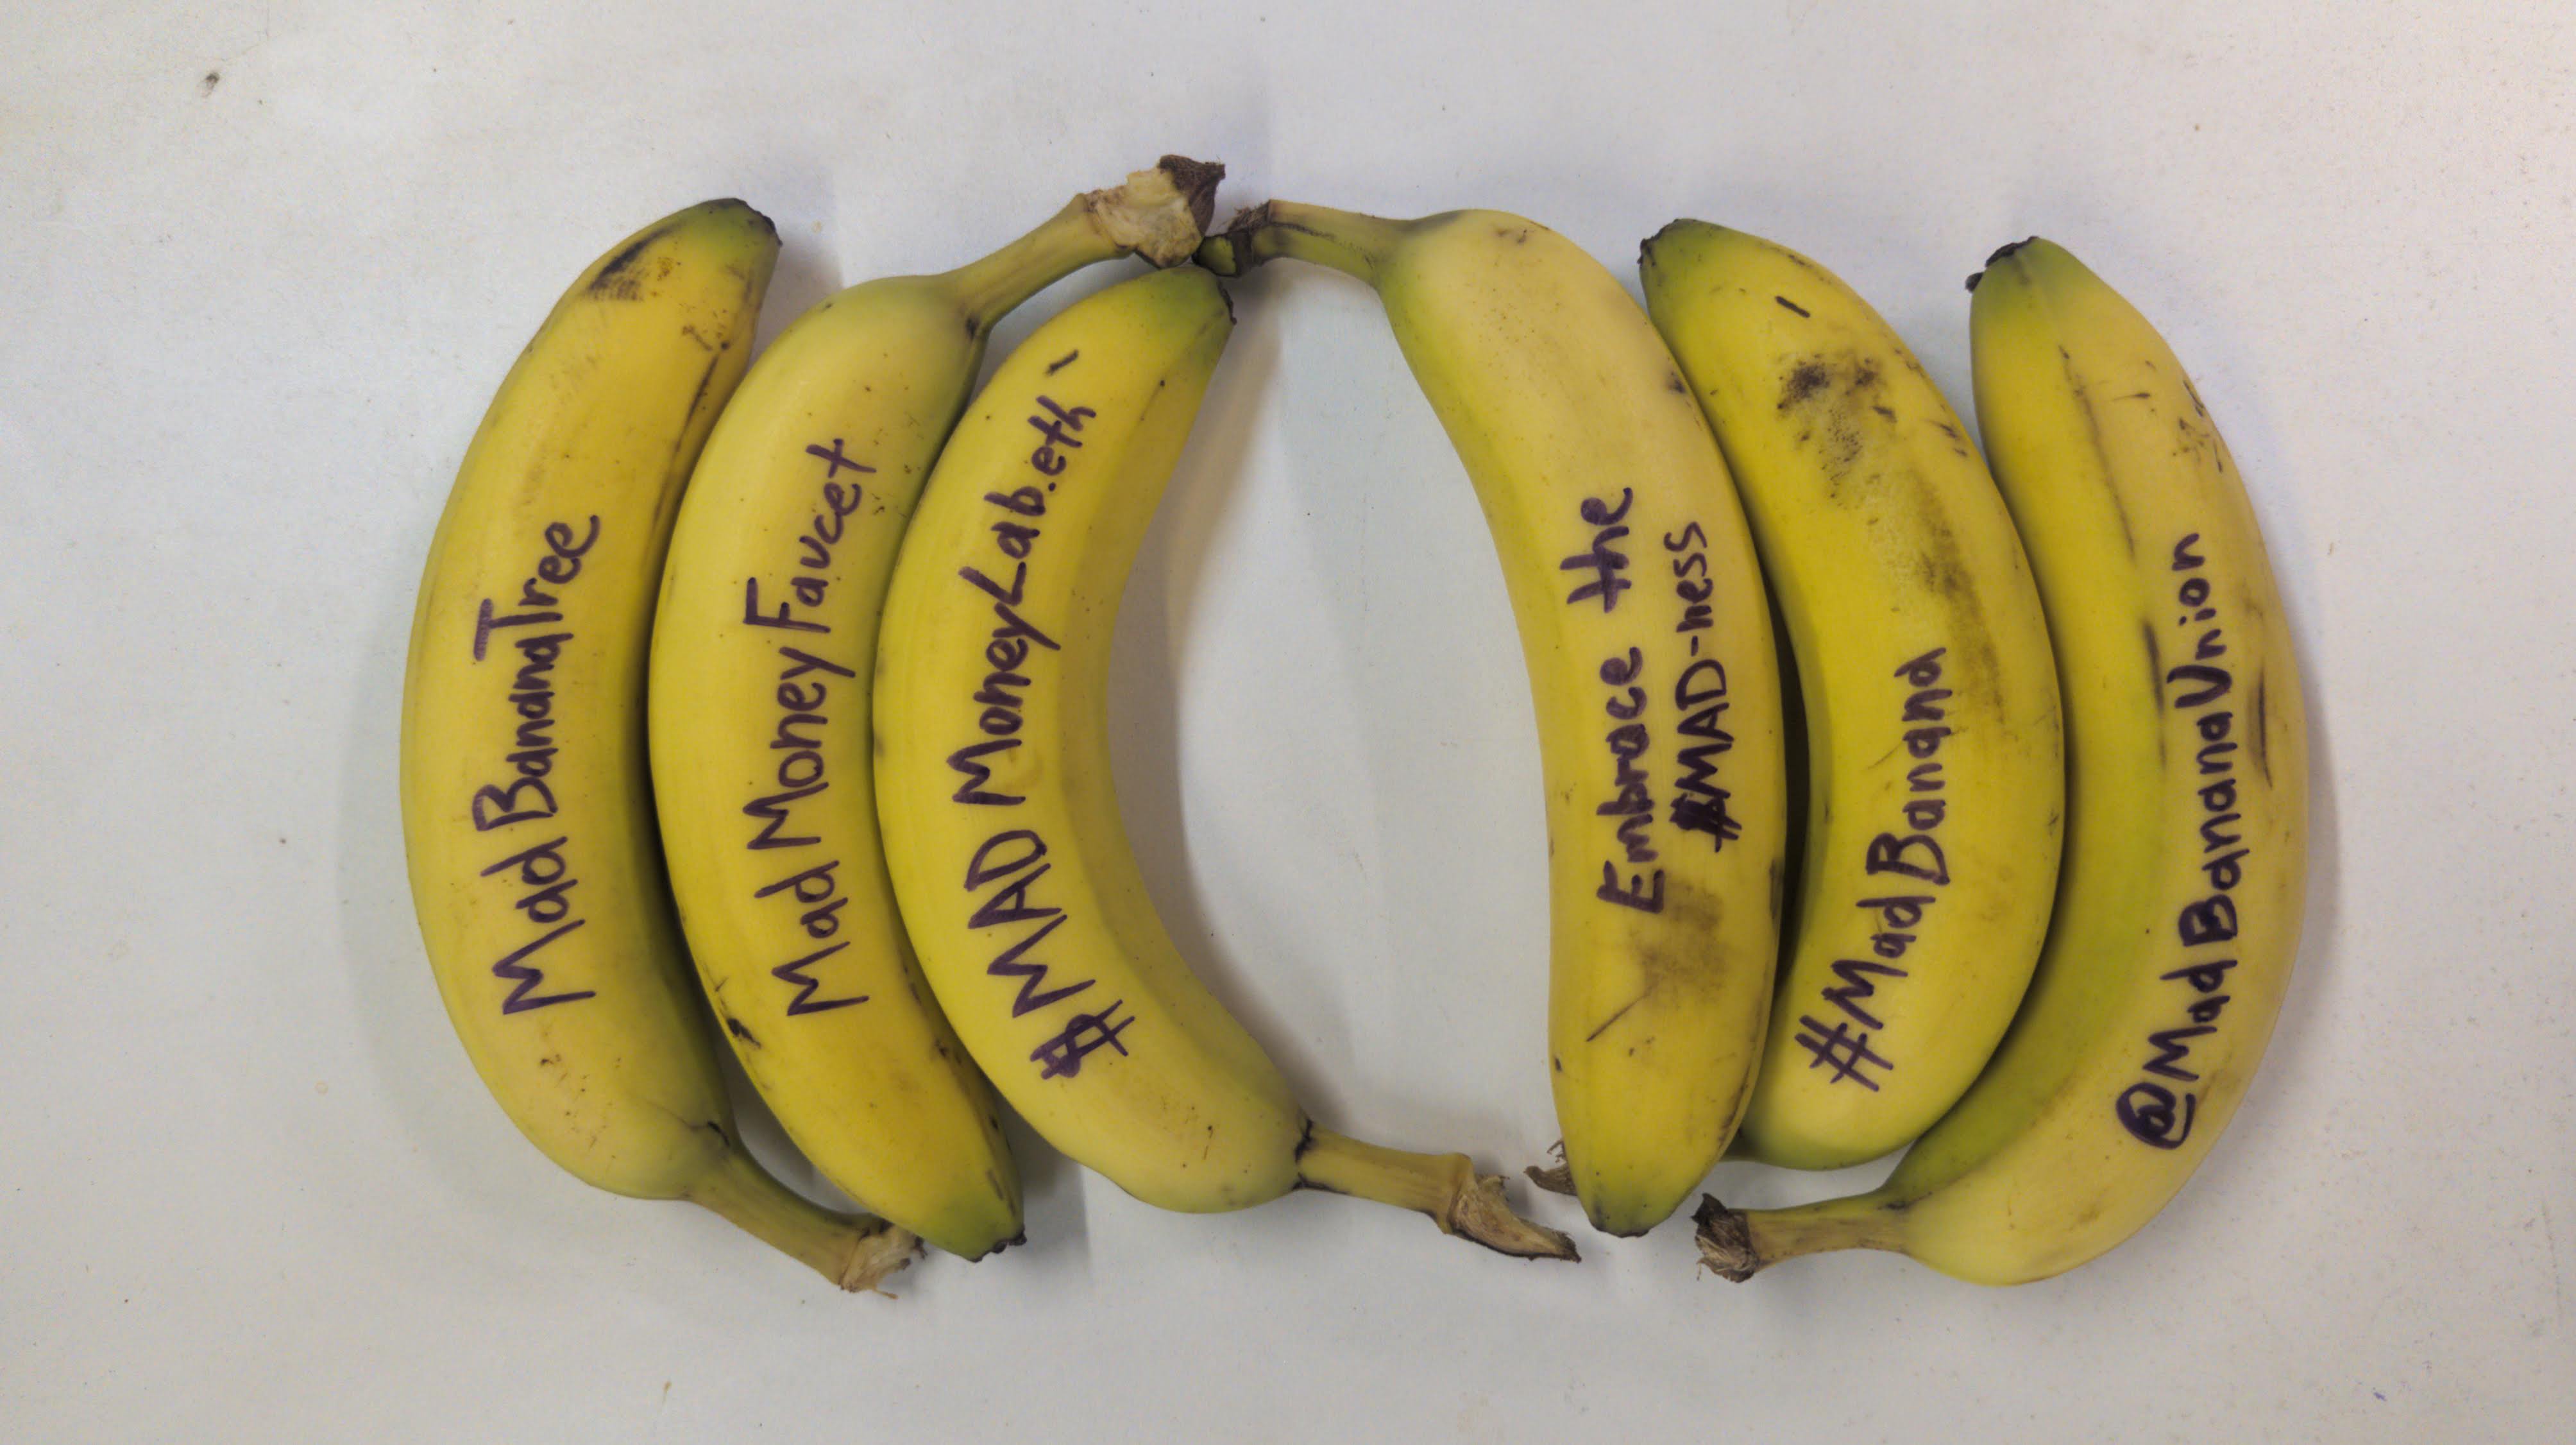 Mad BananaTree
Mad MoneyFaucet
$MAD MoneyLab.eth
Embrace the
$MAD-ness
#MadBanana
@MadBananaUnion